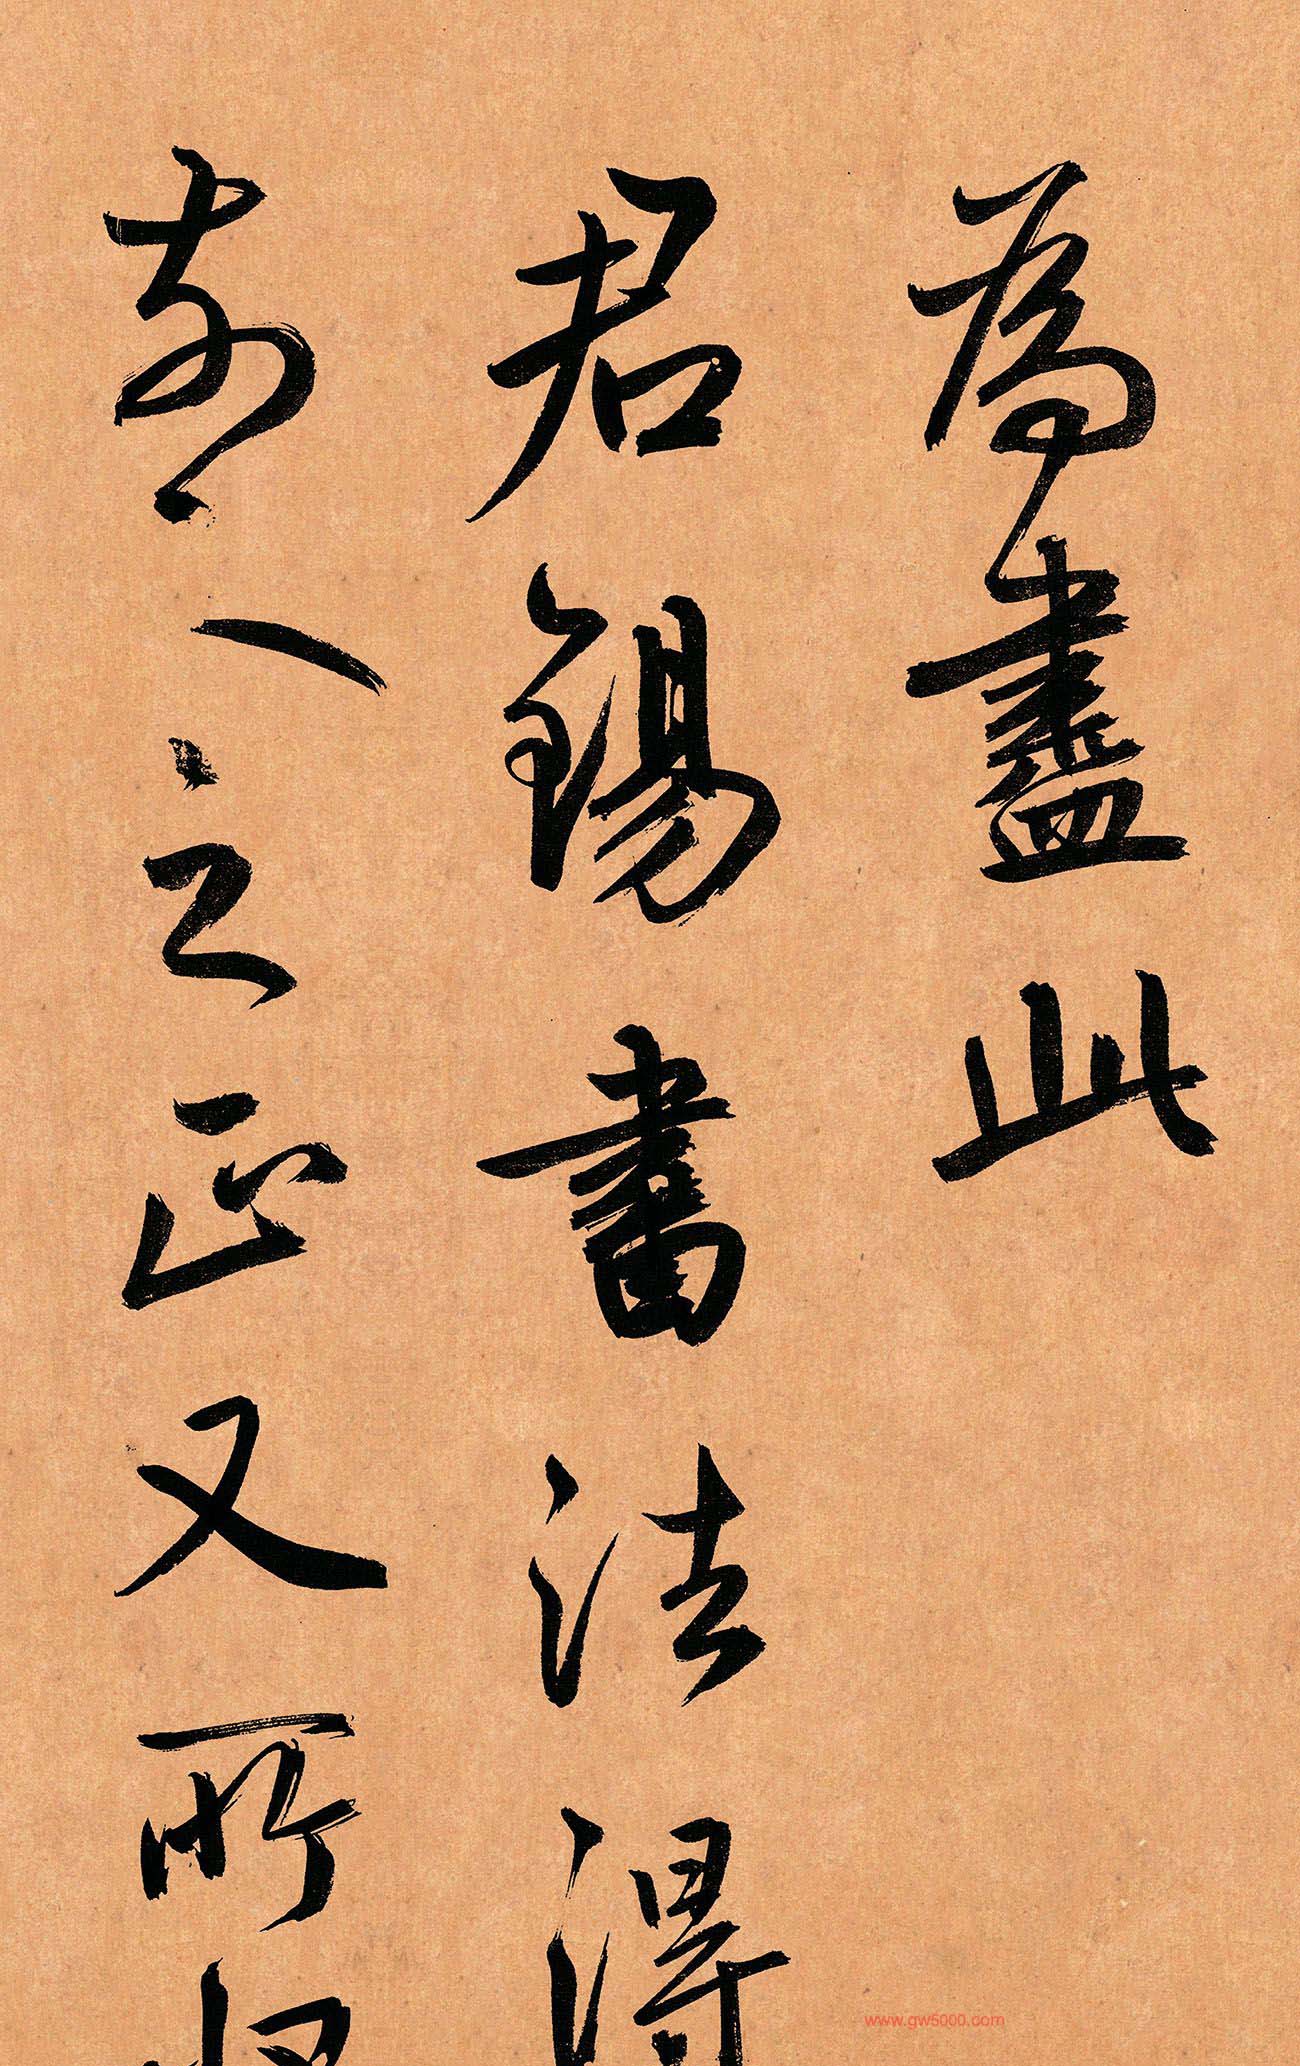 為盡此
君錫書法得
前人之正又所
www.gw5000.com